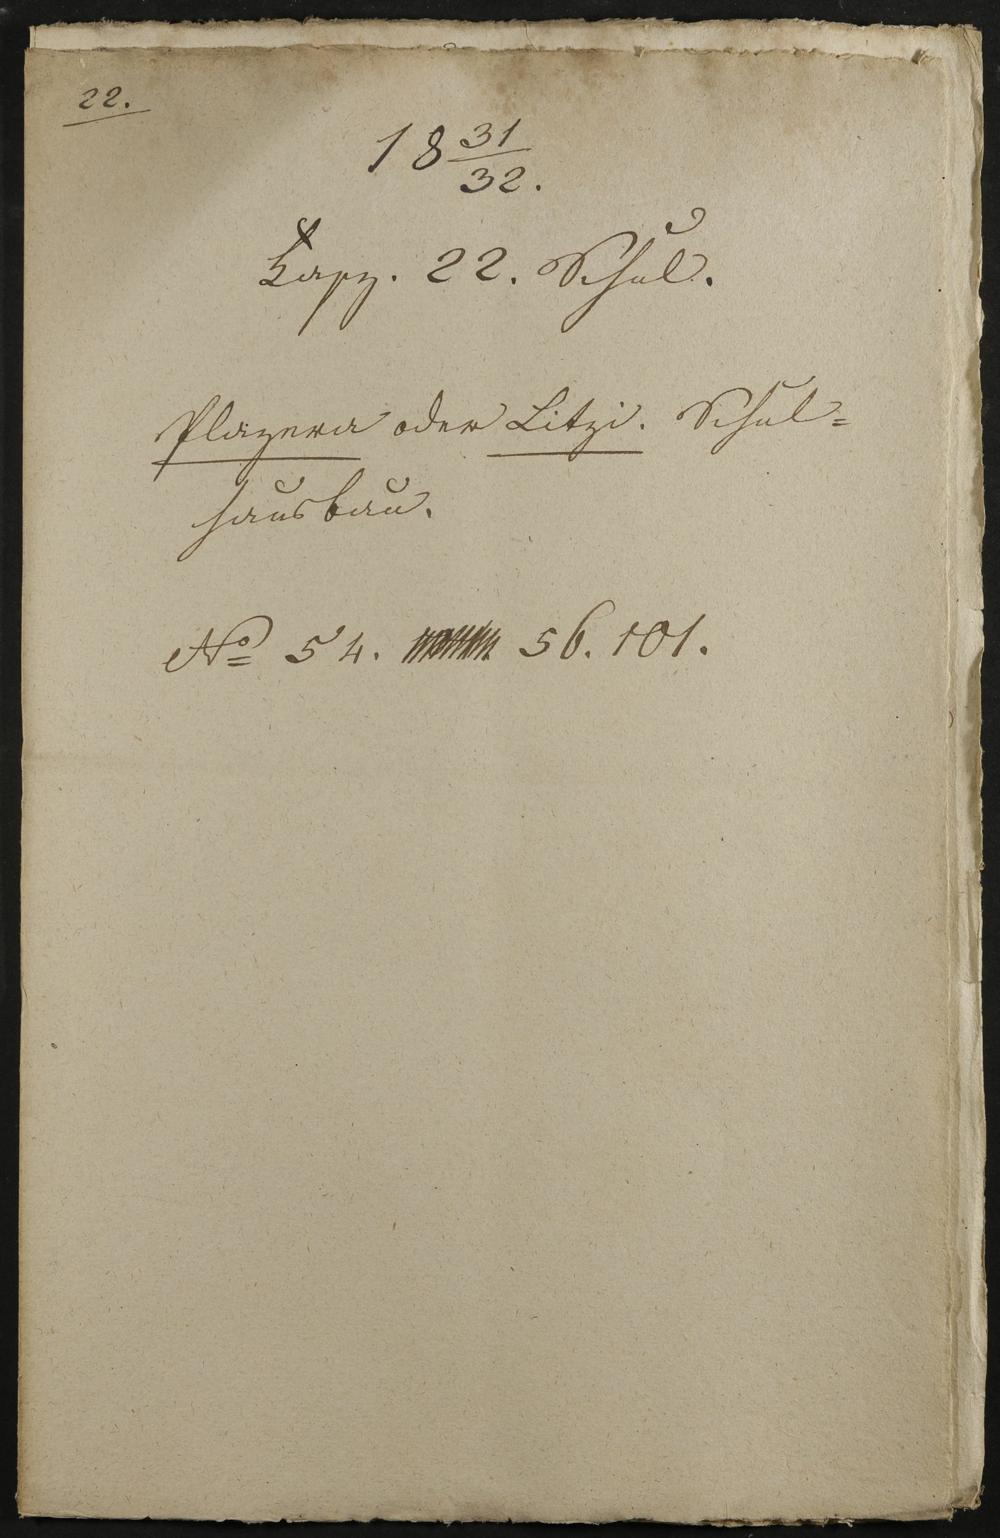 22.
18 31/32.
Kapz. 22. Schul.
Plazera oder Litzi. Schul=
hausbau.
No 54. 56. 101.